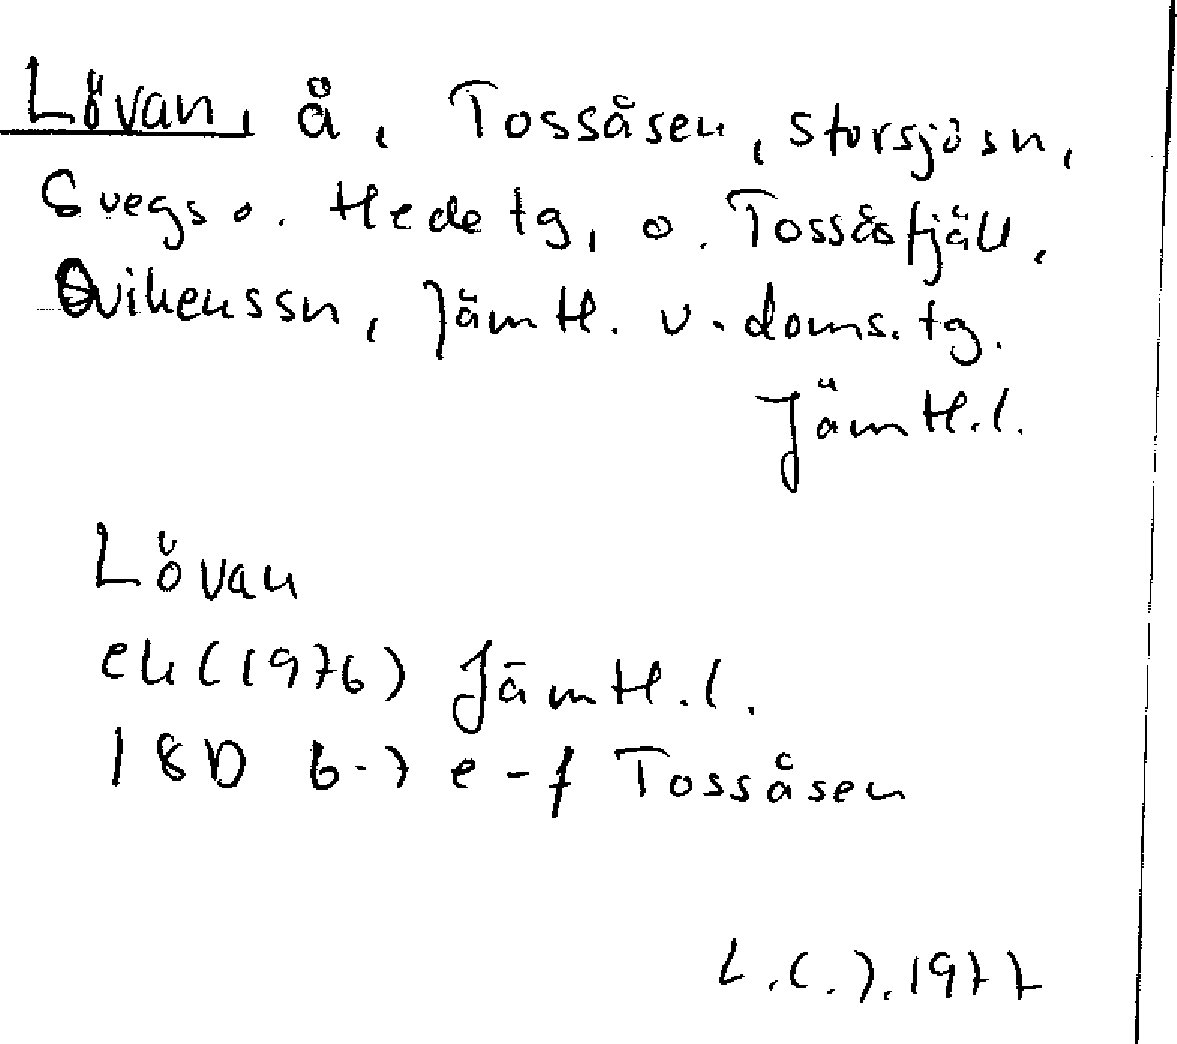 Lövan, å, Tossåsen, Storsjösn,
Svegs o. Hede tg, o. Tossåsfjäll,
Ovikenssn, Jämtl. v. doms. tg.
Jämtl.l.
Lövan
ek (1976) Jämtl.l.
18D 6-7 e-f Tossåsen
1977